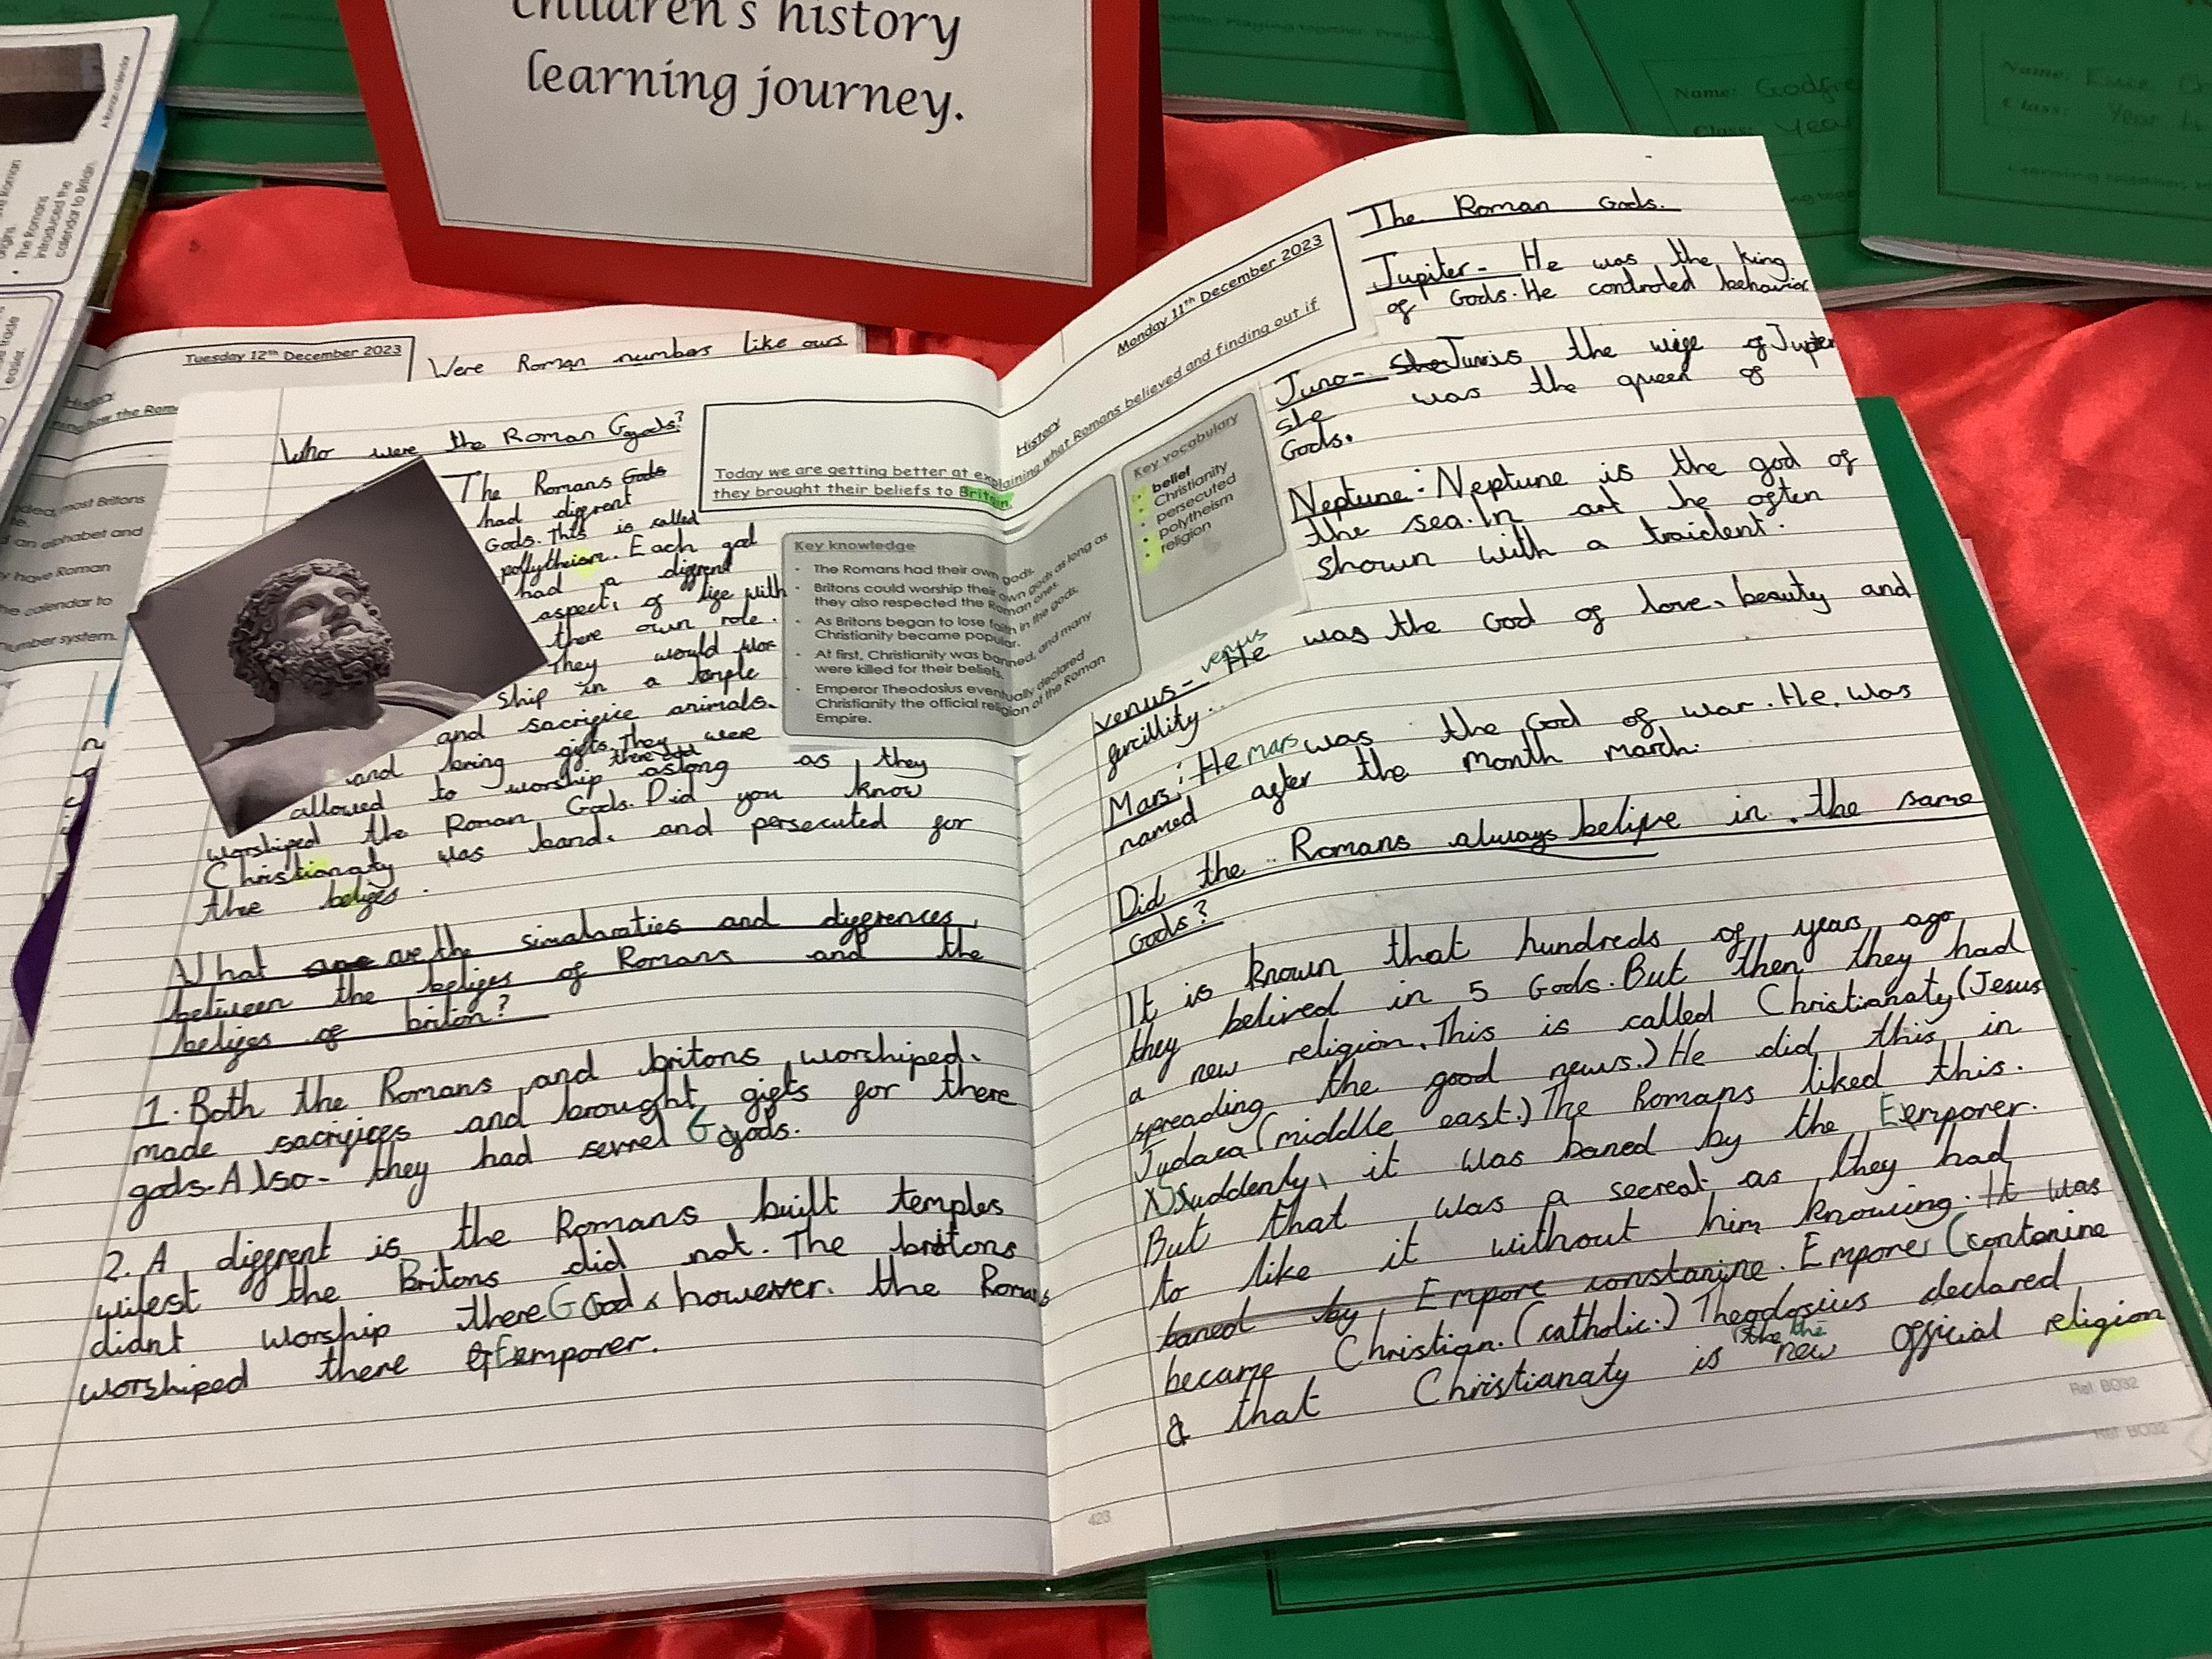 children's history
learning journey.
Name: Godfre
Class: Year
Name:
Class: Year
A Roman calendar
The Romans
introduced the
calendar to Britain
trade
easier.
Tuesday 12th December 2023
Were Roman numbers like ours
History
most Britons
an alphabet and
have Roman
calendar to
number system.
Who were the Roman Ggods?
The Romans Gods
had diffrent
Gods. This is called
pollytheism. Each god
had a diffrent
aspect, of life with
there own role.
They would wor
ship in a temple
and sacrifice animals.
and bring gifts. They were
allowed to worship there aslong as they
worshiped the Roman Gods. Did you know
Christianaty was band. and persecuted for
thee beliefs.
What are are the simalaraties and diffrences
between the beliefs of Romans and the
beliefs of briton?
1. Both the Romans and britons worshiped.
made sacrifices and brought gifts for there
gods. Also- they had sevrel G gods.
2. A diffrent is the Romans built temples
wilest the Britons did not. The britons
didnt worship there G God, however. the Romans
worshiped there Eemporer.
Monday 11th December 2023
History
Today we are getting better at explaining what Romans believed and finding out if
they brought their beliefs to Britain.
Key knowledge
• The Romans had their own gods.
• Britons could worship their own gods as long as
they also respected the Roman ones.
• As Britons began to lose faith in the gods,
Christianity became popular.
• At first, Christianity was banned, and many
were killed for their beliefs.
• Emperor Theodosius eventually declared
Christianity the official religion of the Roman
Empire.
Key vocabulary
• belief
• Christianity
• persecuted
• polytheism
• religion
The Roman Gods.
Jupiter- He was the king
of Gods. He controled behavior
Juno- She Juno is the wife of Jupter
she was the queen of
Gods.
Neptune: Neptune is the god of
the sea. In art he often
shown with a traident.
venus
venus- He was the God of love, beauty and
fercillity..
Mars: He mars was the God of war. He, was
named after the month march.
Did the Romans always believe in the same
Gods?
It is known that hundreds of years ago
they belived in 5 Gods. But then they had
a new religion. This is called Christianaty (Jesus
spreading the good news.) He did this in
Judaea (middle east.) The Romans liked this.
Suddenly, it was baned by the Eemporer.
But that was a secreat as they had
to like it without him knowing. It was
baned by Empore constanine. Emporer (contanine
became Christian. (catholic.) Theodosius declared
a that Christianaty is the the new official religion
Ref: BO32
Ref: BO32
423